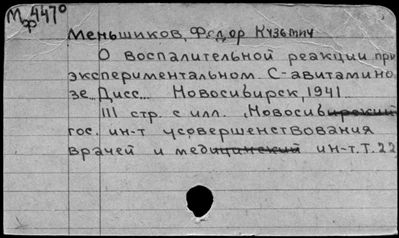 М 447⁰
ф
Меньшиков, Федор Кузьмич
О воспалительной реакции при
экспериментальном С-авитамино
зе. Дисс... Новосибирск, 1941.
III стр. с илл. (Новосибирский
гос. ин-т усовершенствования
врачей и медицинский ин-т. Т. 22